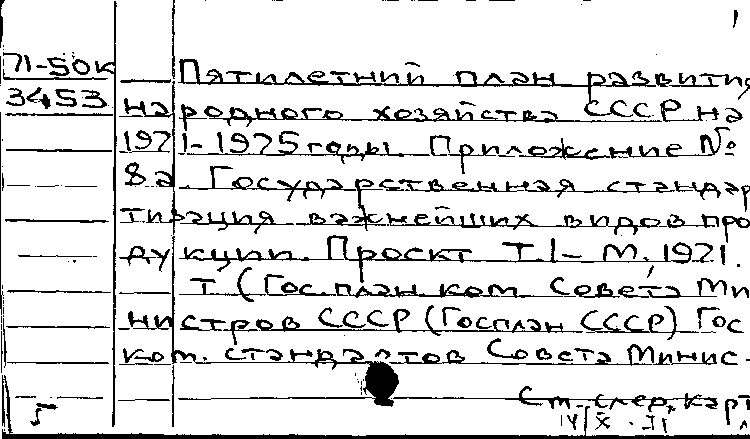 71-50к Пятилетний план развития
3453 народного хозяйства СССР на
1971-1975 годы. Приложение №
8а. Государственная стандар
тизация важнейших видов про
дукции. Проект Т.1- М., 1971.
Т (Гос. план. ком. Совета Ми
нистров СССР (Госплан СССР) Гос
ком. стандартов Совета Минис-
См. след. карт
5 IV/X.71